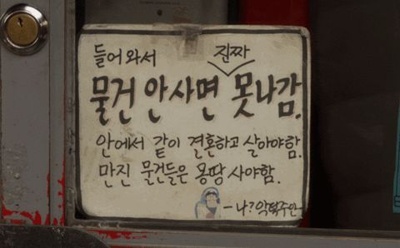 들어와서 진짜
물건 안 사면 못나감.
안에서 같이 결혼하고 살아야함.
만진 물건들은 몽땅 사야함.
-나? 악덕주인-